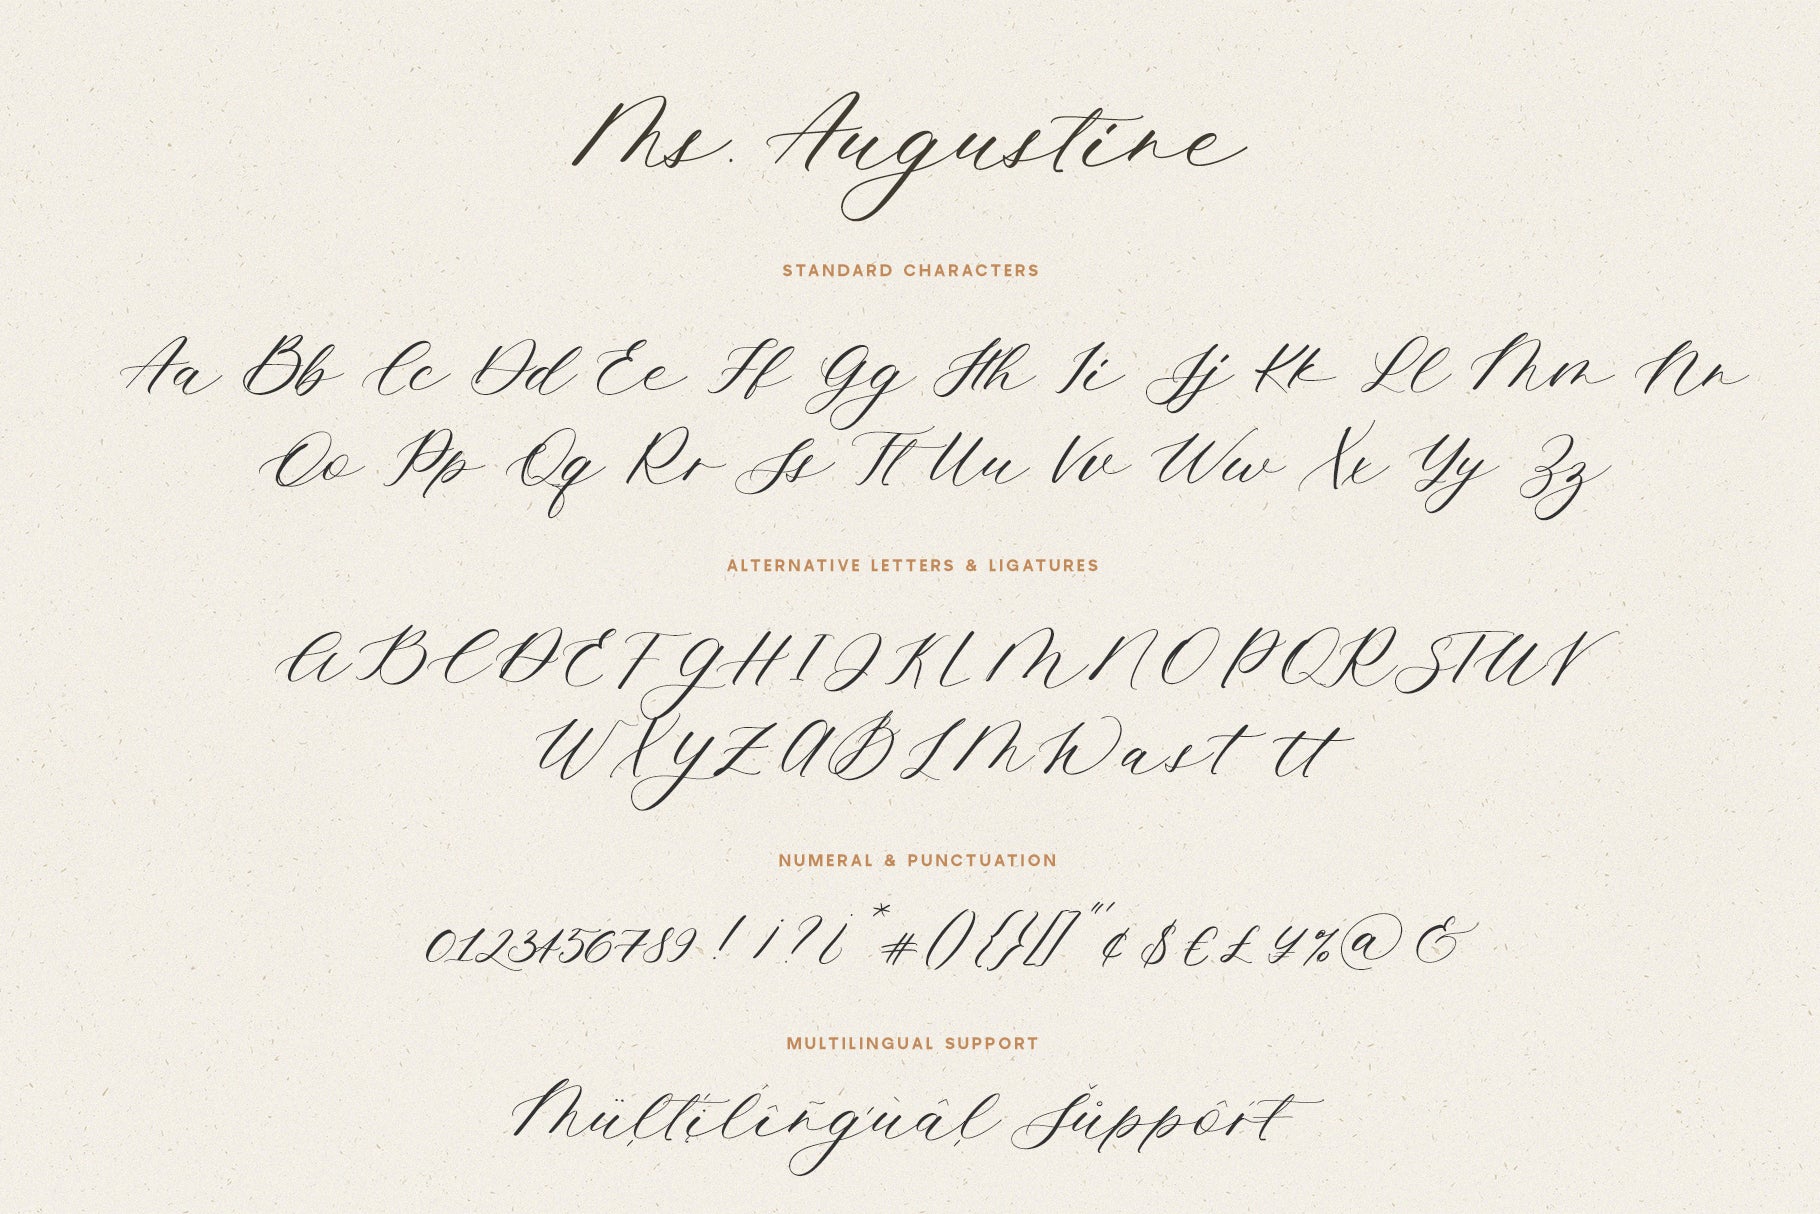 Ms. Augustine
STANDARD CHARACTERS
Aa Bb Cc Dd Ee Ff Gg Hh Ii Jj Kk Ll Mm Nn
Oo Pp Qq Rr Ss Tt Uu Vv Ww Xx Yy Zz
ALTERNATIVE LETTERS & LIGATURES
A B C D E F G H I J K L M N O P Q R S T U V
W X Y Z A B L M W a s t tt
NUMERAL & PUNCTUATION
0123456789 ! ¡ ? ¿ * # () {} [] " ' ¢ $ € £ ¥ % @ &
MULTILINGUAL SUPPORT